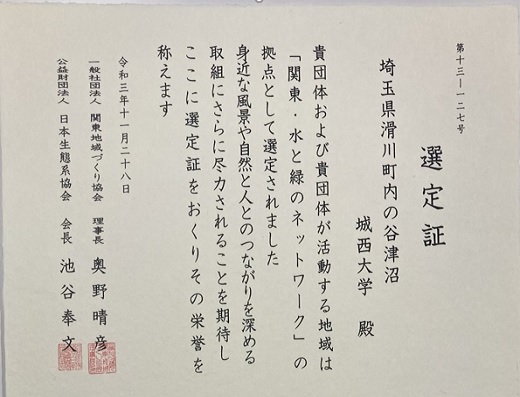 第十三―一二七号
選定証
埼玉県滑川町内の谷津沼
城西大学 殿
貴団体および貴団体が活動する地域は
「関東・水と緑のネットワーク」の
拠点として選定されました
身近な風景や自然と人とのつながりを深める
取組にさらに尽力されることを期待し
ここに選定証をおくりその栄誉を
称えます
令和三年十一月二十八日
一般社団法人 関東地域づくり協会 理事長 奥野晴彦
公益財団法人 日本生態系協会 会長 池谷奉文